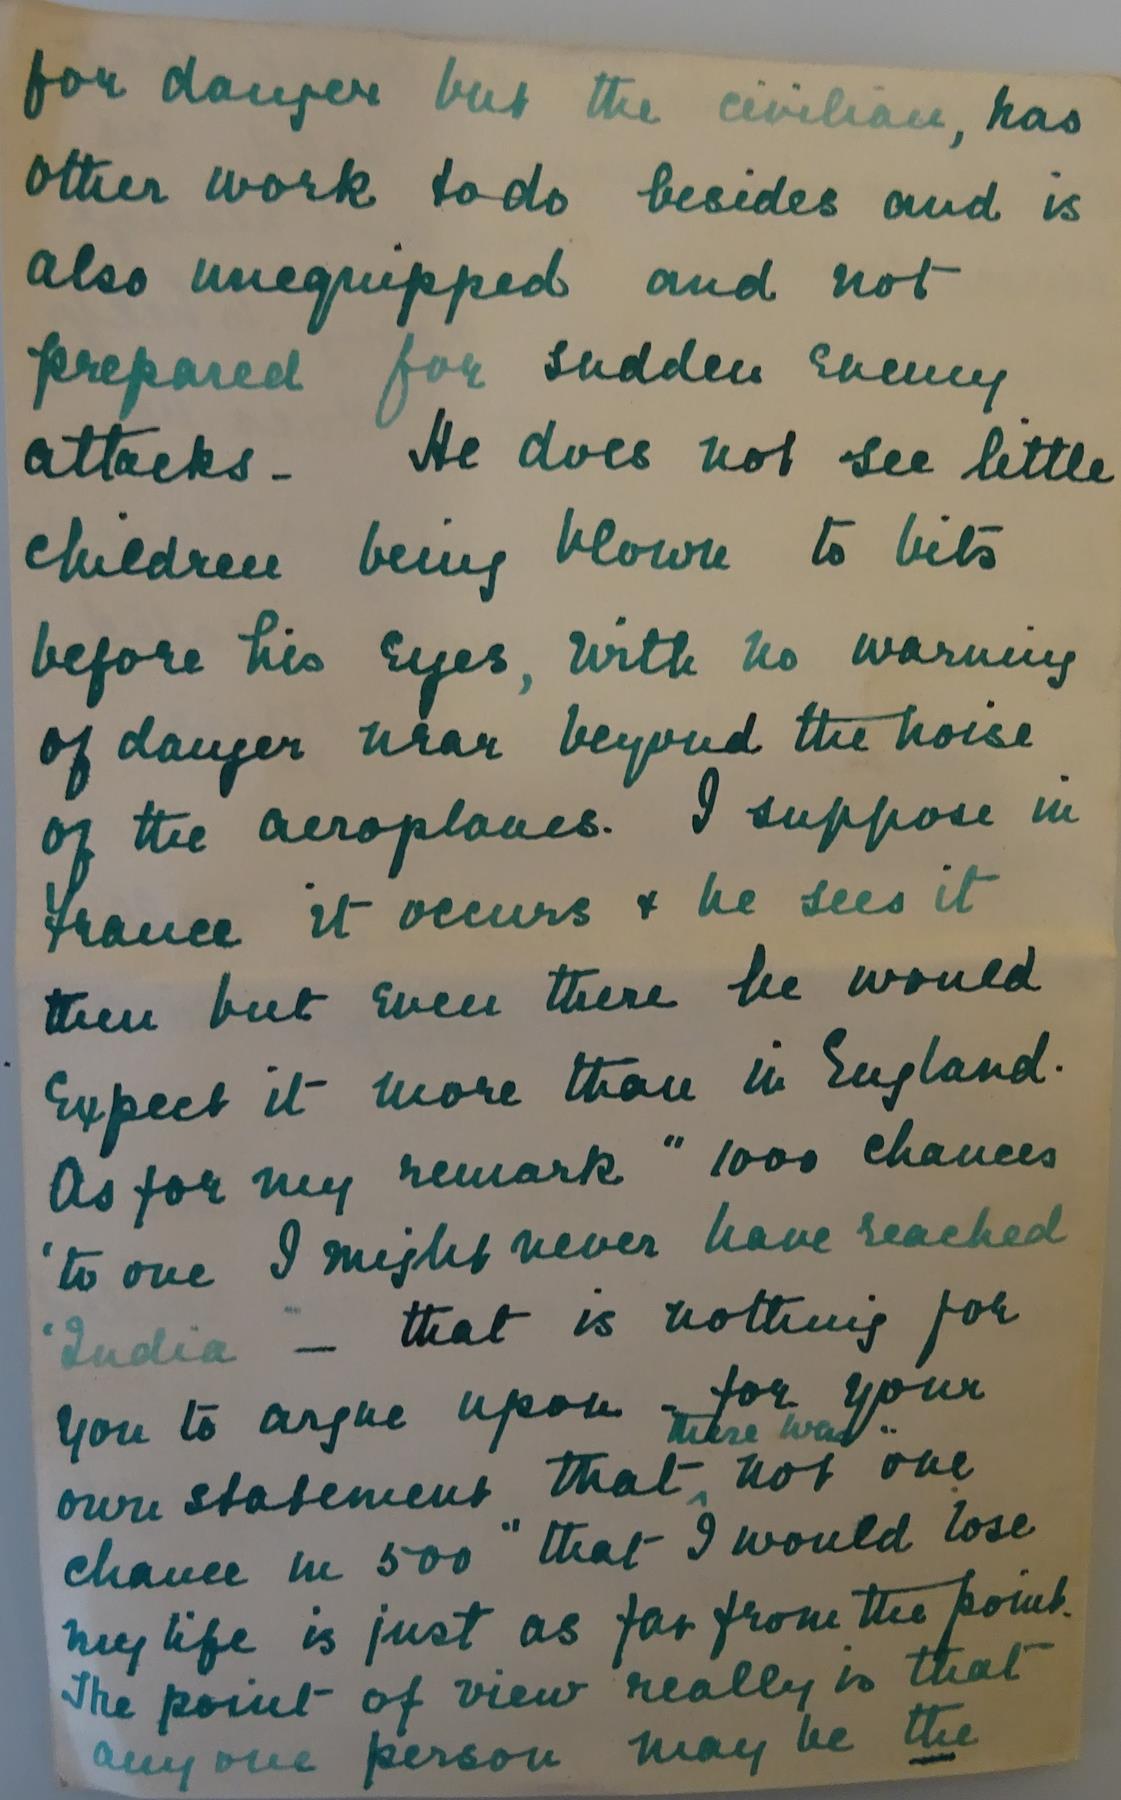 for danger but the civilian, has
other work to do besides and is
also unequipped and not
prepared for sudden enemy
attacks - He does not see little
children being blown to bits
before his eyes, with no warning
of danger near beyond the noise
of the aeroplanes. I suppose in
France it occurs & he sees it
then but even there he would
expect it more than in England.
As for my remark "1000 chances
'to one I might never have reached
'India" - that is nothing for
you to argue upon - for your
own statement that there was not "one
chance in 500" that I would lose
my life is just as far from the point.
The point of view really is that
any one person may be the